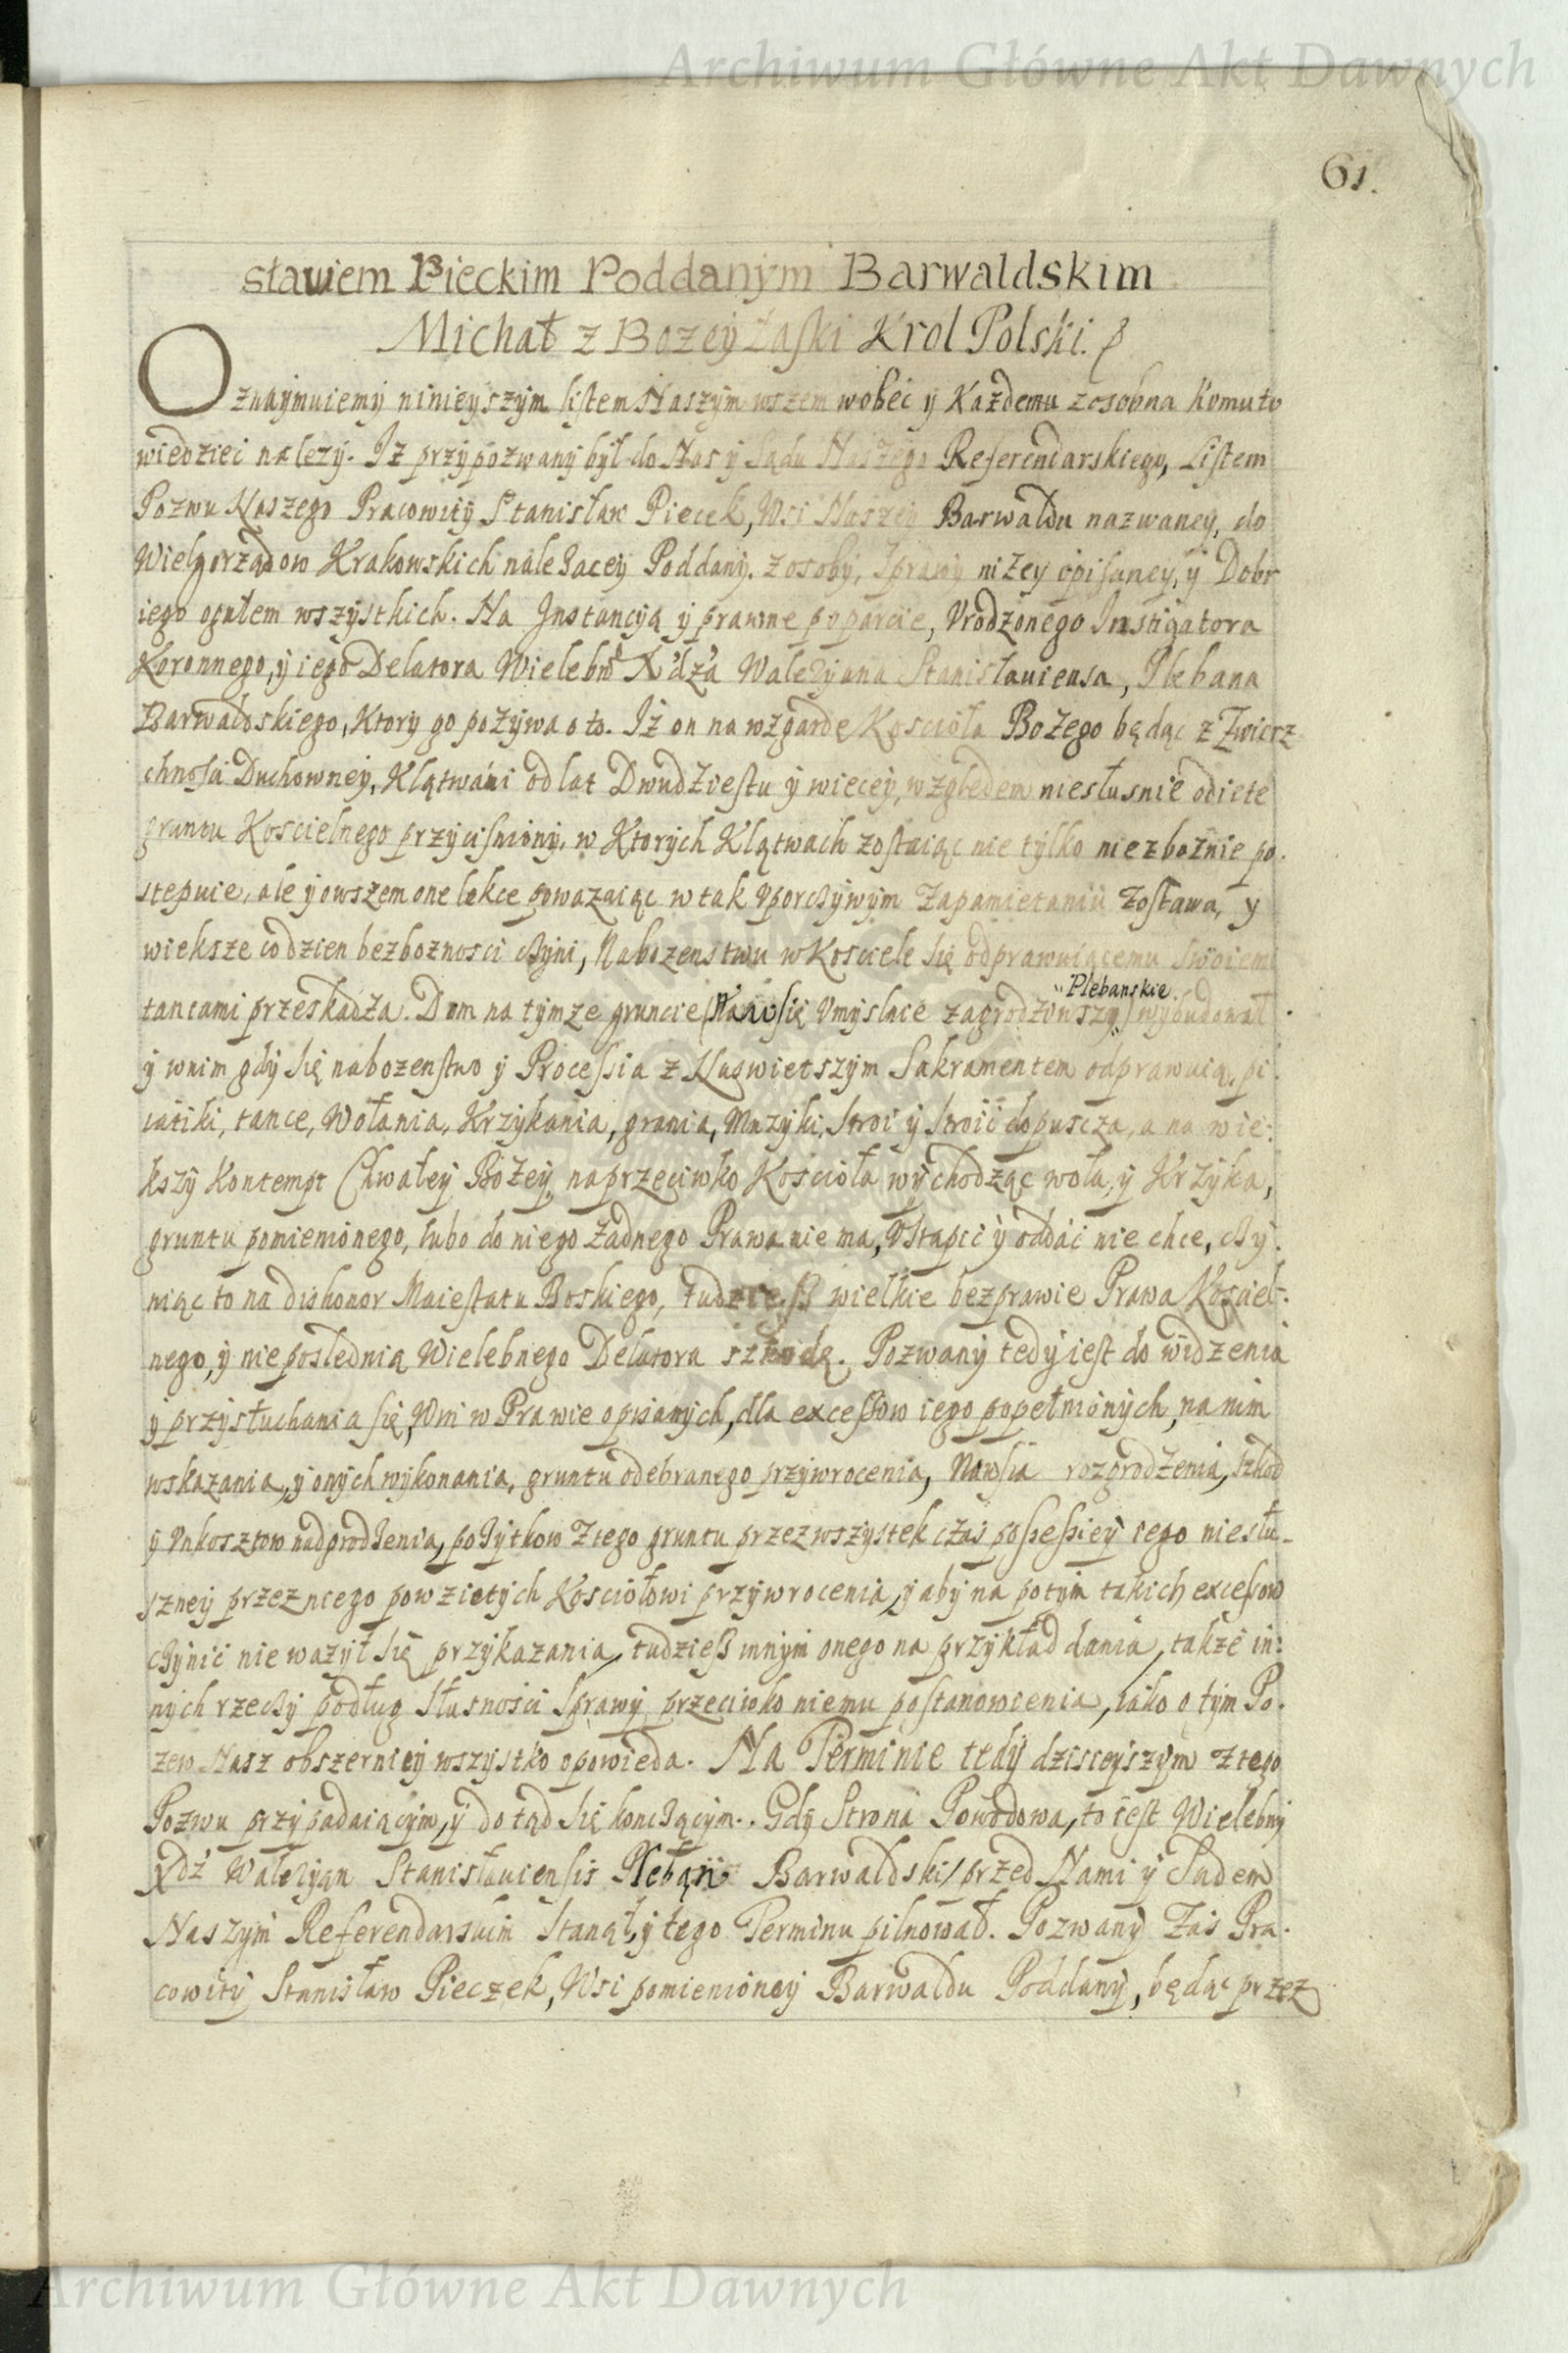 Archiwum Główne Akt Dawnych
61.
sławiem Pieckim Poddanym Barwaldskim
Michał z Bozey Łaski Krol Polski.
Oznaymuiemy ninieyszym listem Naszym wszem wobec y Każdemu zosobna komu to
wiedziec nalezy. Iż przypozwany był do Nas y Sądu Naszego Referendarskiego, Listem
Pozwu Naszego Pracowity Stanisław Piecek, Wsi Naszey Barwałdu nazwaney, do
Wielgorządow Krakowskich należacey Poddany. z osoby, Sprawy niżey opisaney, y Dobr
iego ogułem wszystkich. Na Instancyą y prawne poparcie, Vrodzonego Instigatora
Koronnego, y iego Delatora Wielebnº X'dza Waleryana Stanisławiensa, Plebana
Barwałdskiego, Ktory go pozywa o to. Iż on na wzgardę Kościoła Bożego będąc z Zwierz
chności Duchowney, Klątwami od lat Dwudziestu y wiecey, względem niesłusnie odiete
gruntu Koscielnego przyciśniony, w Ktorych Klątwach zostaiąc nie tylko niezbożnie po.
stepuie, ale y owszem one lekce poważaiąc w tak Vporczywym Zapamietaniu zostawa, y
wieksze co dzien bezboznosci czyni, Nabozenstwu w Kosciele się odprawuiącemu swoiemi
tancami przeskadza. Dom na tymze gruncie Nawsię Vmyslnie zagrodziwszy wybudował
Plebanskie
y w nim gdy się nabozenstwo y Processia z Naswietszym Sakramentem odprawuią, pi
iatiki, tance, Wołania, Krzykania, grania, Muzyki, Stroi y Stroić dopuscza, a na wie:
kszy Kontempt Chwałey Bożey, naprzeciwko Kościoła wychodząc woła, y Krzyka,
gruntu pomienionego, lubo do niego Żadnego Prawa nie ma, Vstąpić y oddać nie chce, czy.
niąc to na dishonor Maiestatu Boskiego, tudziesz wielkie bezprawie Prawa Kościel:
nego, y nieposlednią Wielebnego Delatora szkodę. Pozwany tedy iest do widzenia
y przysłuchania się, Win w Prawie opisanych, dla excessow iego popełnionych, na nim
wskazania, y onych wykonania, gruntu odebranego przywrocenia, Nawsia rozgrodzenia, szkod
y Vnkosztow nadgrodzenia, pożytkow z tego gruntu przez wszystek czas possessiey iego niesłu-
szney przez niego powzietych Kościołowi przywrocenia, y aby na potym takich excesow
czynić nie ważył się przykazania, tudziesz innym onego na przykład dania, także in:
nych rzeczy podług słusności Sprawy przeciwko niemu postanowienia, iako o tym Po.
zew Nasz obszerniey wszystko opowieda. Na Terminie tedy dzisieyszym z tego
Pozwu przypadaiącym, y do tąd się kończącym. Gdy Strona Powodowa, to iest Wielebny
Xdz Waleryan Stanisławiensis Pleban Barwaldski, przed Nami y Sądem
Naszym Referendarskim Stanął, y tego Terminu pilnował. Pozwany Zaś Pra.
cowity Stanisław Pieczek, Wsi pomienioney Barwałdu Poddany, będąc przez
Archiwum Główne Akt Dawnych